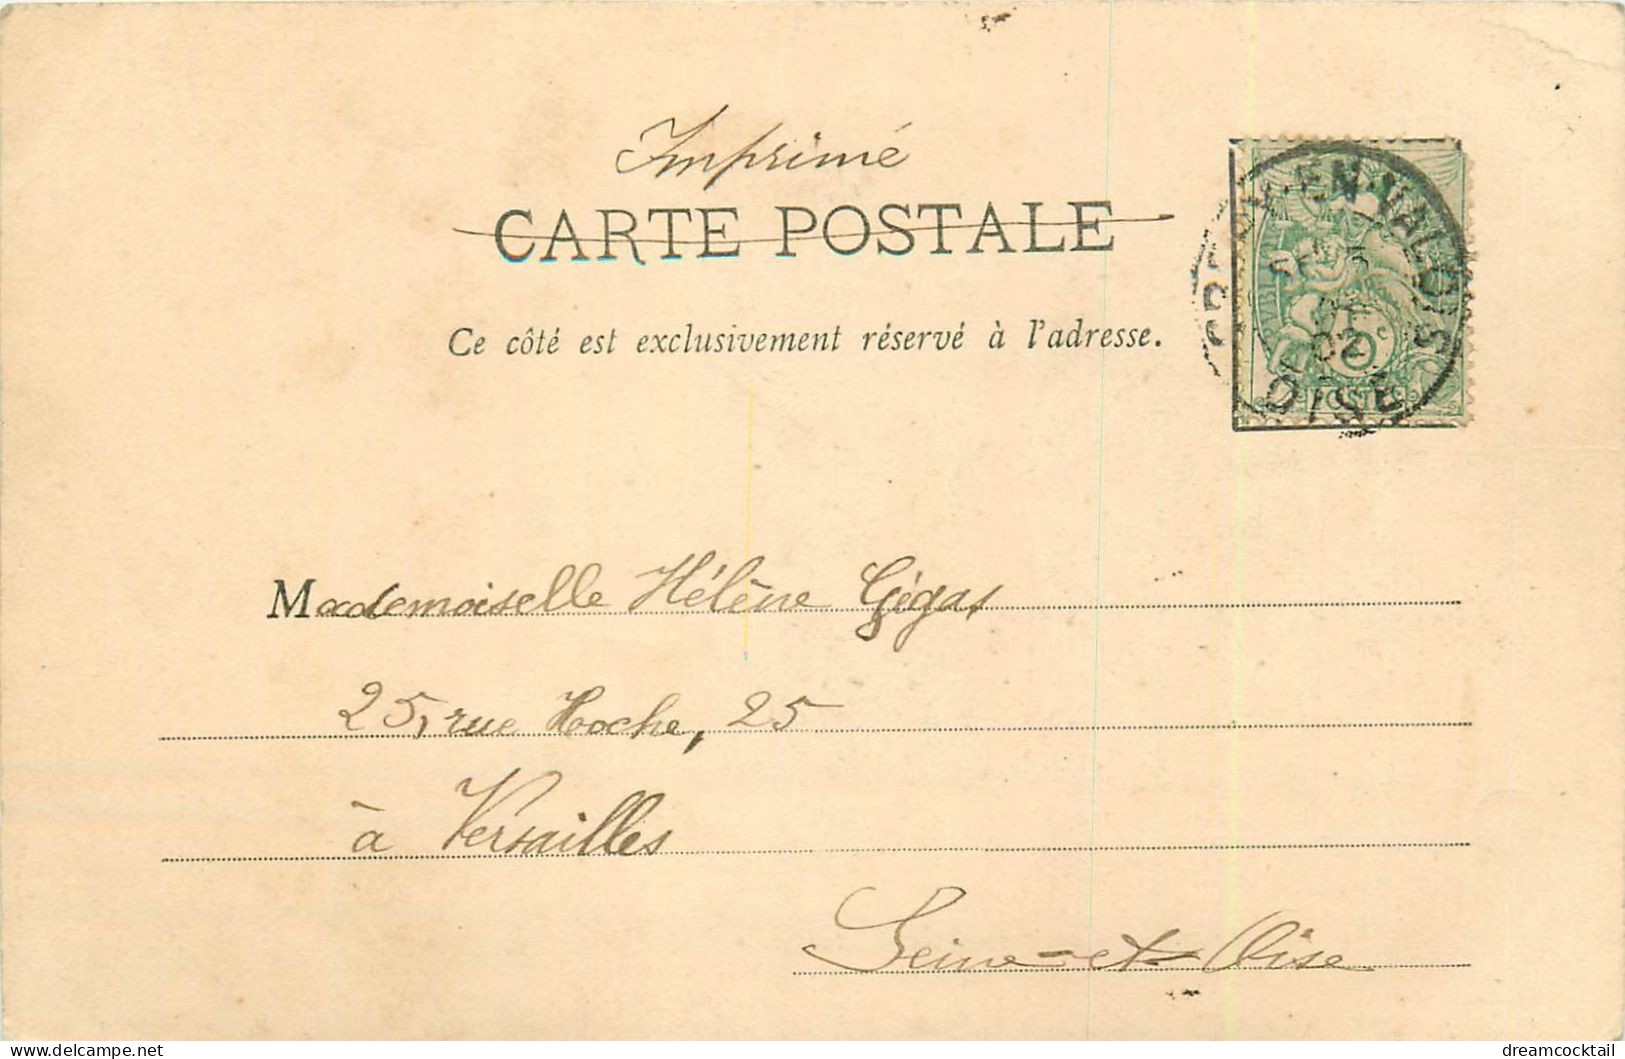 Imprimé
CARTE POSTALE
Ce côté est exclusivement réservé à l'adresse.
EN-VALOIS
02
OISE
POSTES
Mademoiselle Hélène Gigas
25, rue Hoche, 25
à Versailles
Seine-et-Oise
Delcampe.net
dreamcocktail